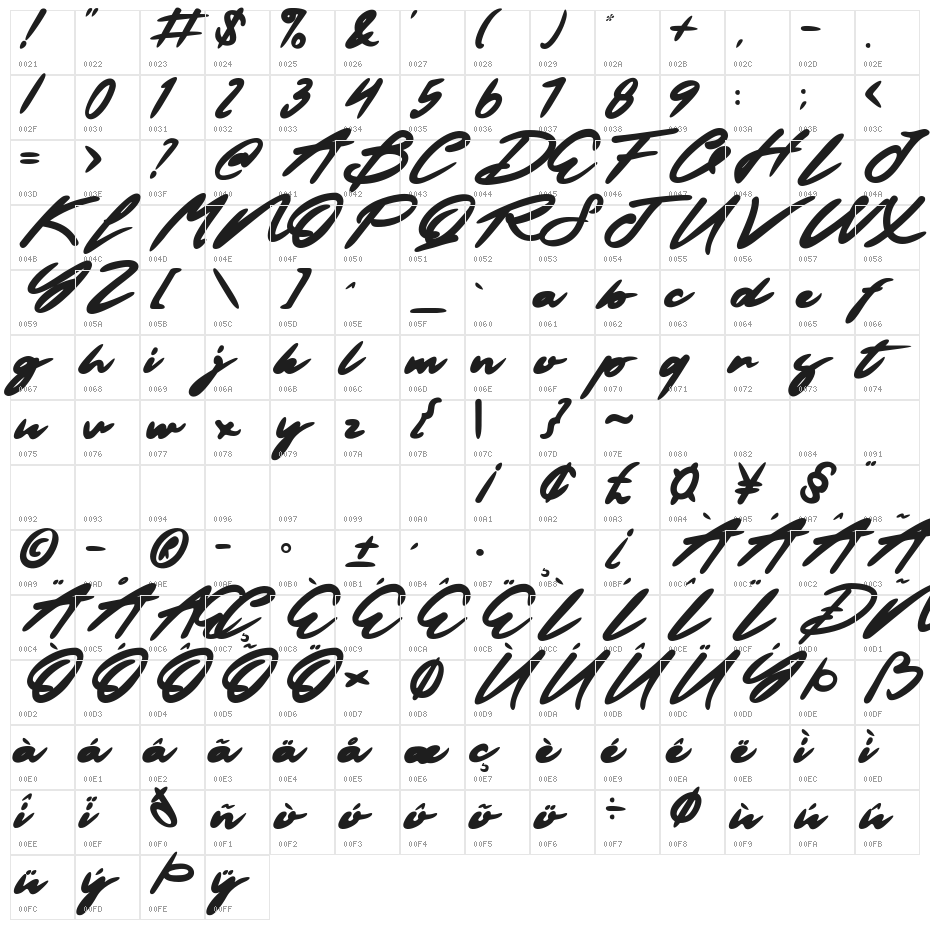 ! " # $ % & ' ( ) * + , - .
0021 0022 0023 0024 0025 0026 0027 0028 0029 002A 002B 002C 002D 002E
/ 0 1 2 3 4 5 6 7 8 9 : ; <
002F 0030 0031 0032 0033 0034 0035 0036 0037 0038 0039 003A 003B 003C
= > ? @ A B C D E F G H I J
003D 003E 003F 0040 0041 0042 0043 0044 0045 0046 0047 0048 0049 004A
K L M N O P Q R S T U V W X
004B 004C 004D 004E 004F 0050 0051 0052 0053 0054 0055 0056 0057 0058
Y Z [ \ ] ^ _ ` a b c d e f
0059 005A 005B 005C 005D 005E 005F 0060 0061 0062 0063 0064 0065 0066
g h i j k l m n o p q r s t
0067 0068 0069 006A 006B 006C 006D 006E 006F 0070 0071 0072 0073 0074
u v w x y z { | } ~
0075 0076 0077 0078 0079 007A 007B 007C 007D 007E 0080 0082 0084 0091
¡ ¢ £ ¤ ¥ § ¨
0092 0093 0094 0096 0097 0099 00A0 00A1 00A2 00A3 00A4 00A5 00A7 00A8
© - ® ¯ ° ± ´ · ¸ ¿ À Á Â Ã
00A9 00AD 00AE 00AF 00B0 00B1 00B4 00B7 00B8 00BF 00C0 00C1 00C2 00C3
Ä Å Æ Ç È É Ê Ë Ì Í Î Ï Ð Ñ
00C4 00C5 00C6 00C7 00C8 00C9 00CA 00CB 00CC 00CD 00CE 00CF 00D0 00D1
Ò Ó Ô Õ Ö × Ø Ù Ú Û Ü Ý Þ ß
00D2 00D3 00D4 00D5 00D6 00D7 00D8 00D9 00DA 00DB 00DC 00DD 00DE 00DF
à á â ã ä å æ ç è é ê ë ì í
00E0 00E1 00E2 00E3 00E4 00E5 00E6 00E7 00E8 00E9 00EA 00EB 00EC 00ED
î ï ð ñ ò ó ô õ ö ÷ ø ù ú û
00EE 00EF 00F0 00F1 00F2 00F3 00F4 00F5 00F6 00F7 00F8 00F9 00FA 00FB
ü ý þ ÿ
00FC 00FD 00FE 00FF